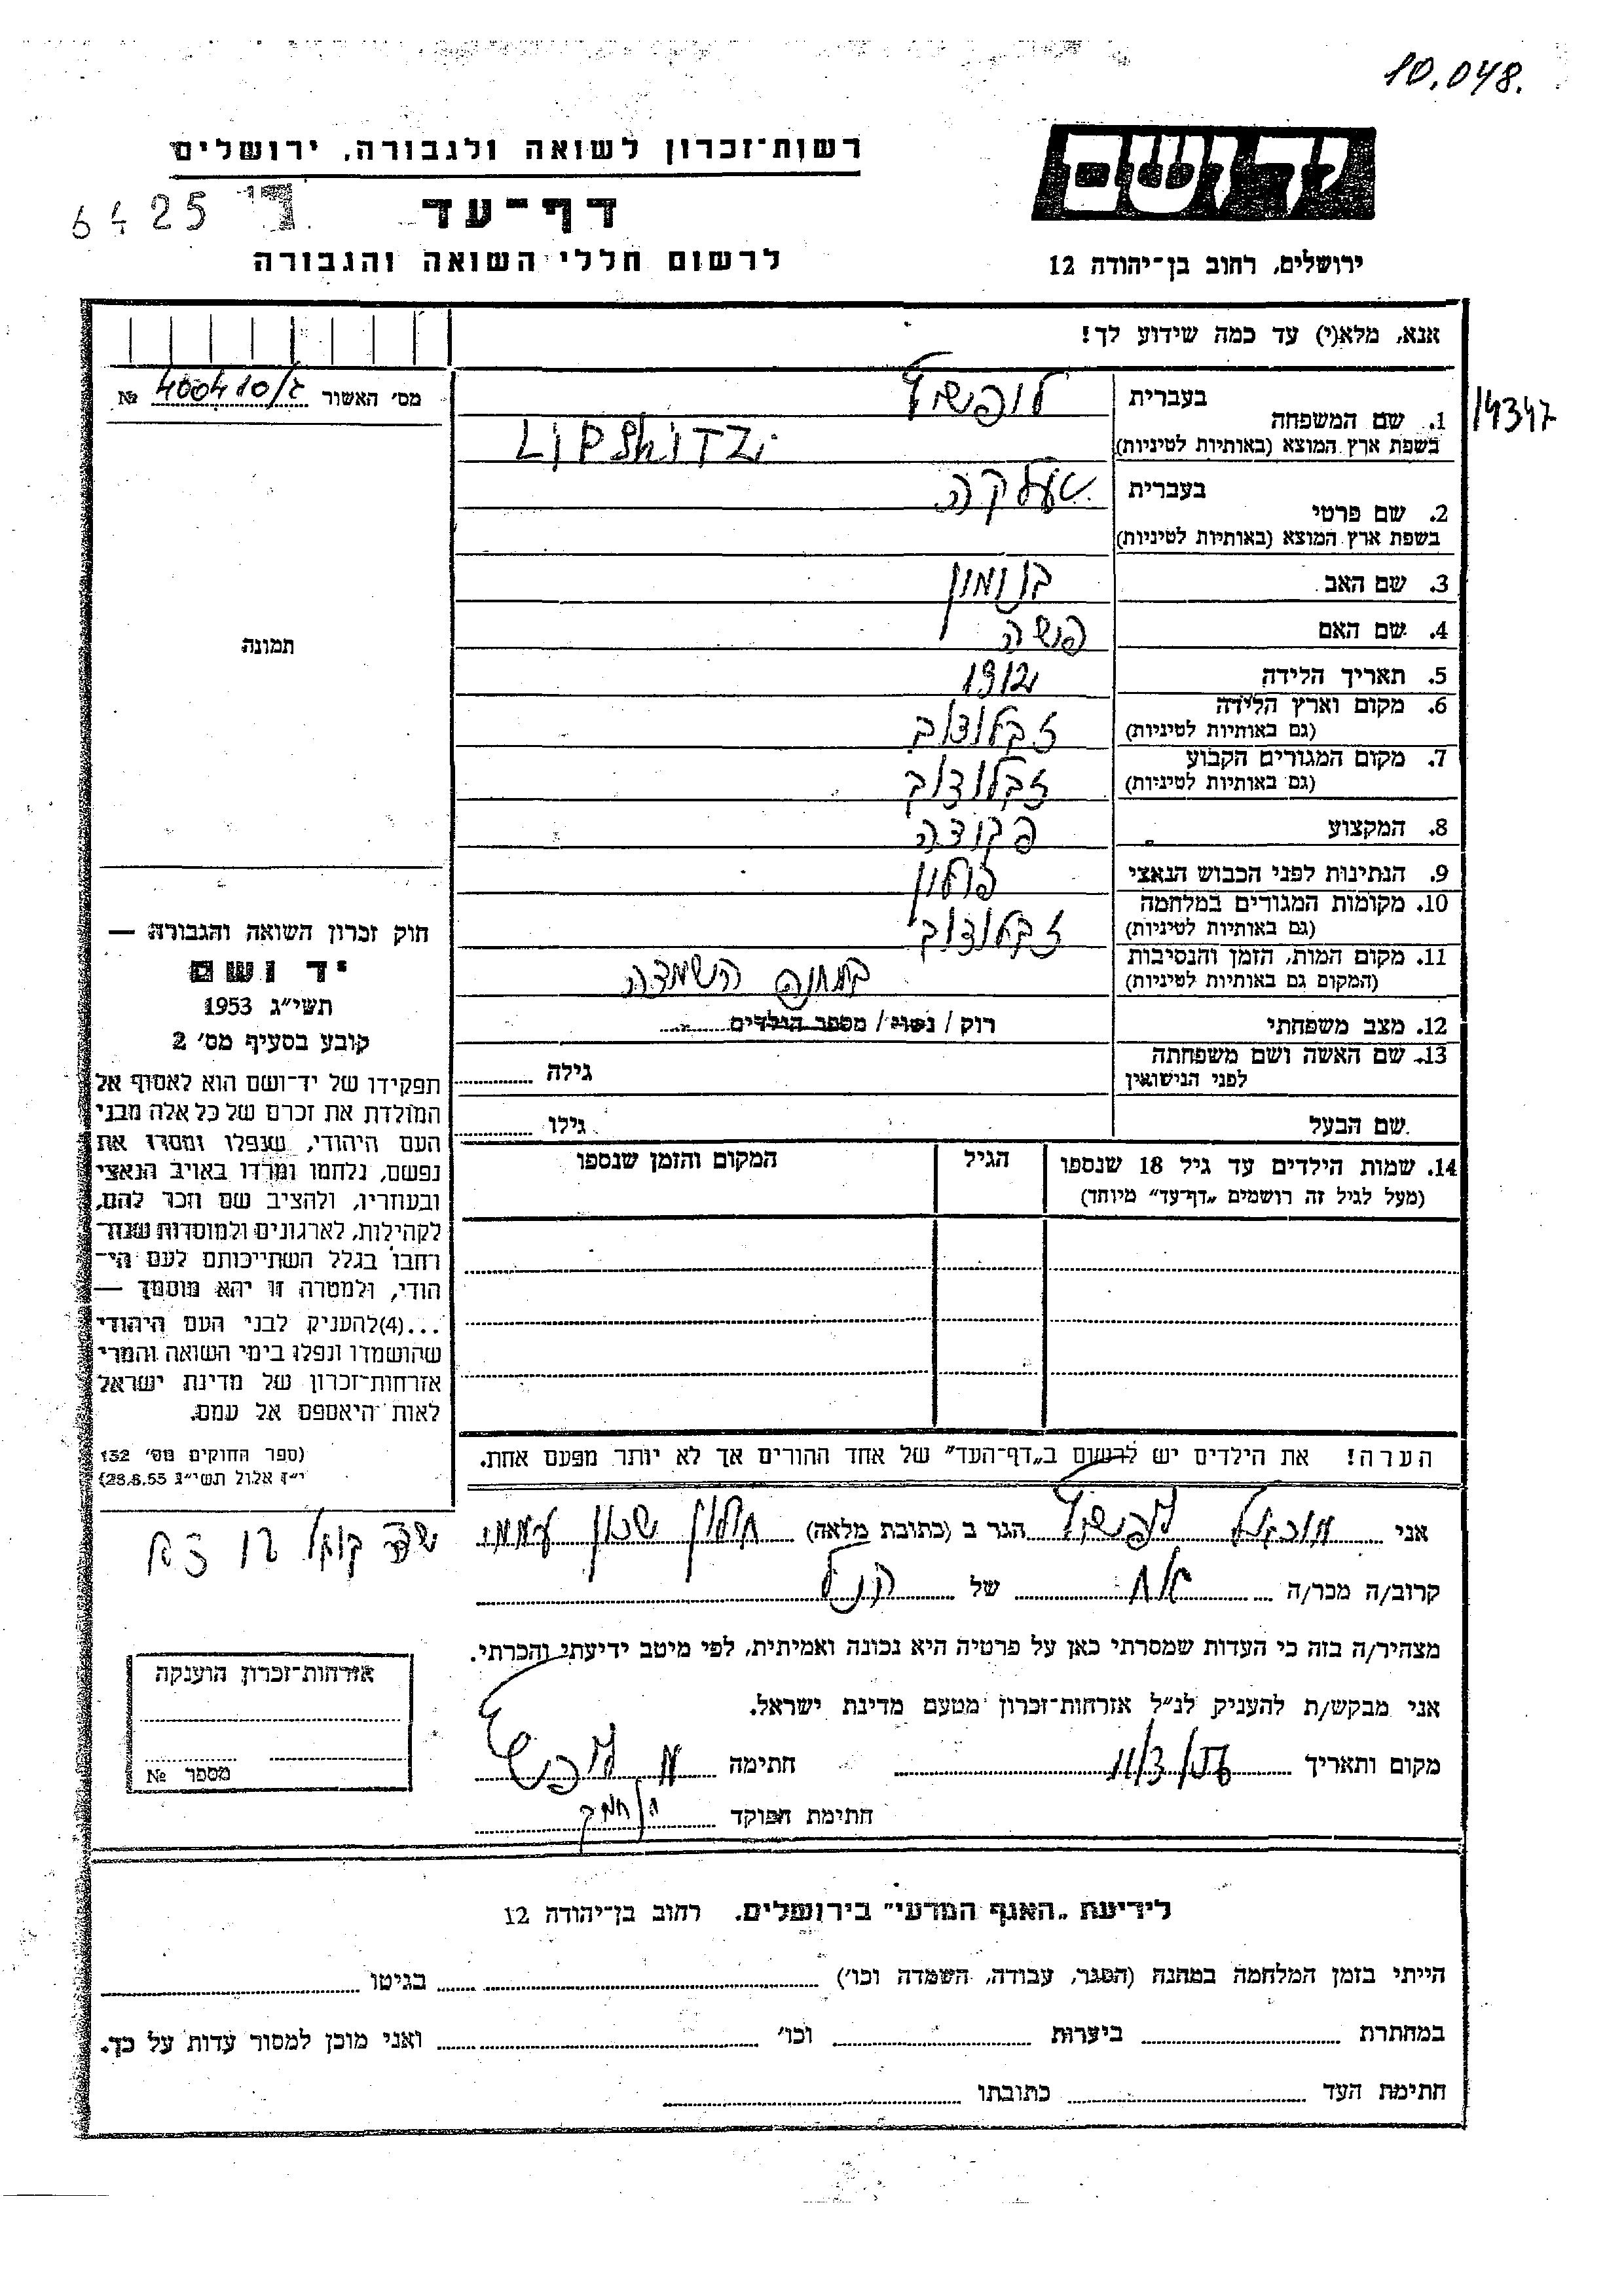 10.048.
יד ושם
רשות־זכרון לשואה ולגבורה, ירושלים
דף־עד
6425
לרשום חללי השואה והגבורה
ירושלים, רחוב בן־יהודה 12
אנא, מלא(י) עד כמה שידוע לך!
מס׳ האשור 400410/ג №
14347
1. שם המשפחה
בעברית ליפשיץ
בשפת ארץ המוצא (באותיות לטיניות) LIPSHITZ
2. שם פרטי
בעברית
בשפת ארץ המוצא (באותיות לטיניות)
3. שם האב
4. שם האם
5. תאריך הלידה 1912
6. מקום וארץ הלידה זבלודוב
(גם באותיות לטיניות)
7. מקום המגורים הקבוע זבלודוב
(גם באותיות לטיניות)
8. המקצוע פקידה
9. הנתינות לפני הכבוש הנאצי פולין
10. מקומות המגורים במלחמה זבלודוב
(גם באותיות לטיניות)
11. מקום המות, הזמן והנסיבות במחנה השמדה
(המקום גם באותיות לטיניות)
12. מצב משפחתי רוק / נשוי / מספר הילדים
13. שם האשה ושם משפחתה גילה
לפני הנישואין
שם הבעל גילו
14. שמות הילדים עד גיל 18 שנספו הגיל המקום והזמן שנספו
(מעל לגיל זה רושמים „דף־עד״ מיוחד)
הערה! את הילדים יש לרשום ב„דף־העד״ של אחד ההורים אך לא יותר מפעם אחת.
תמונה
חוק זכרון השואה והגבורה —
יד ושם
תשי״ג 1953
קובע בסעיף מס׳ 2
תפקידו של יד־ושם הוא לאסוף אל
המולדת את זכרם של כל אלה מבני
העם היהודי, שנפלו ומסרו את
נפשם, נלחמו ומרדו באויב הנאצי
ובעוזריו, ולהציב שם וזכר להם,
לקהילות, לארגונים ולמוסדות שנח־
רבו בגלל השתייכותם לעם הי־
הודי, ולמטרה זו יהא מוסמך —
...(4)להעניק לבני העם היהודי
שהושמדו ונפלו בימי השואה והמרי
אזרחות־זכרון של מדינת ישראל
לאות היאספם אל עמם.
(ספר החוקים מס׳ 132
י״ז אלול תשי״ג 28.8.53)
אני ליפשיץ הגר ב (כתובת מלאה) חולון שכון עממי
קרוב/ה מכר/ה אח של הנ״ל
מצהיר/ה בזה כי העדות שמסרתי כאן על פרטיה היא נכונה ואמיתית, לפי מיטב ידיעתי והכרתי.
אני מבקש/ת להעניק לנ״ל אזרחות־זכרון מטעם מדינת ישראל.
מקום ותאריך 11/3/56 חתימה מ ליפשיץ
חתימת הפוקד
אזרחות־זכרון הוענקה
מספר №
לידיעת „האגף המדעי״ בירושלים, רחוב בן־יהודה 12
הייתי בזמן המלחמה במחנה (הסגר, עבודה, השמדה וכו׳) בגיטו
במחתרת ביערות וכו׳ ואני מוכן למסור עדות על כך.
חתימת העד כתובתו